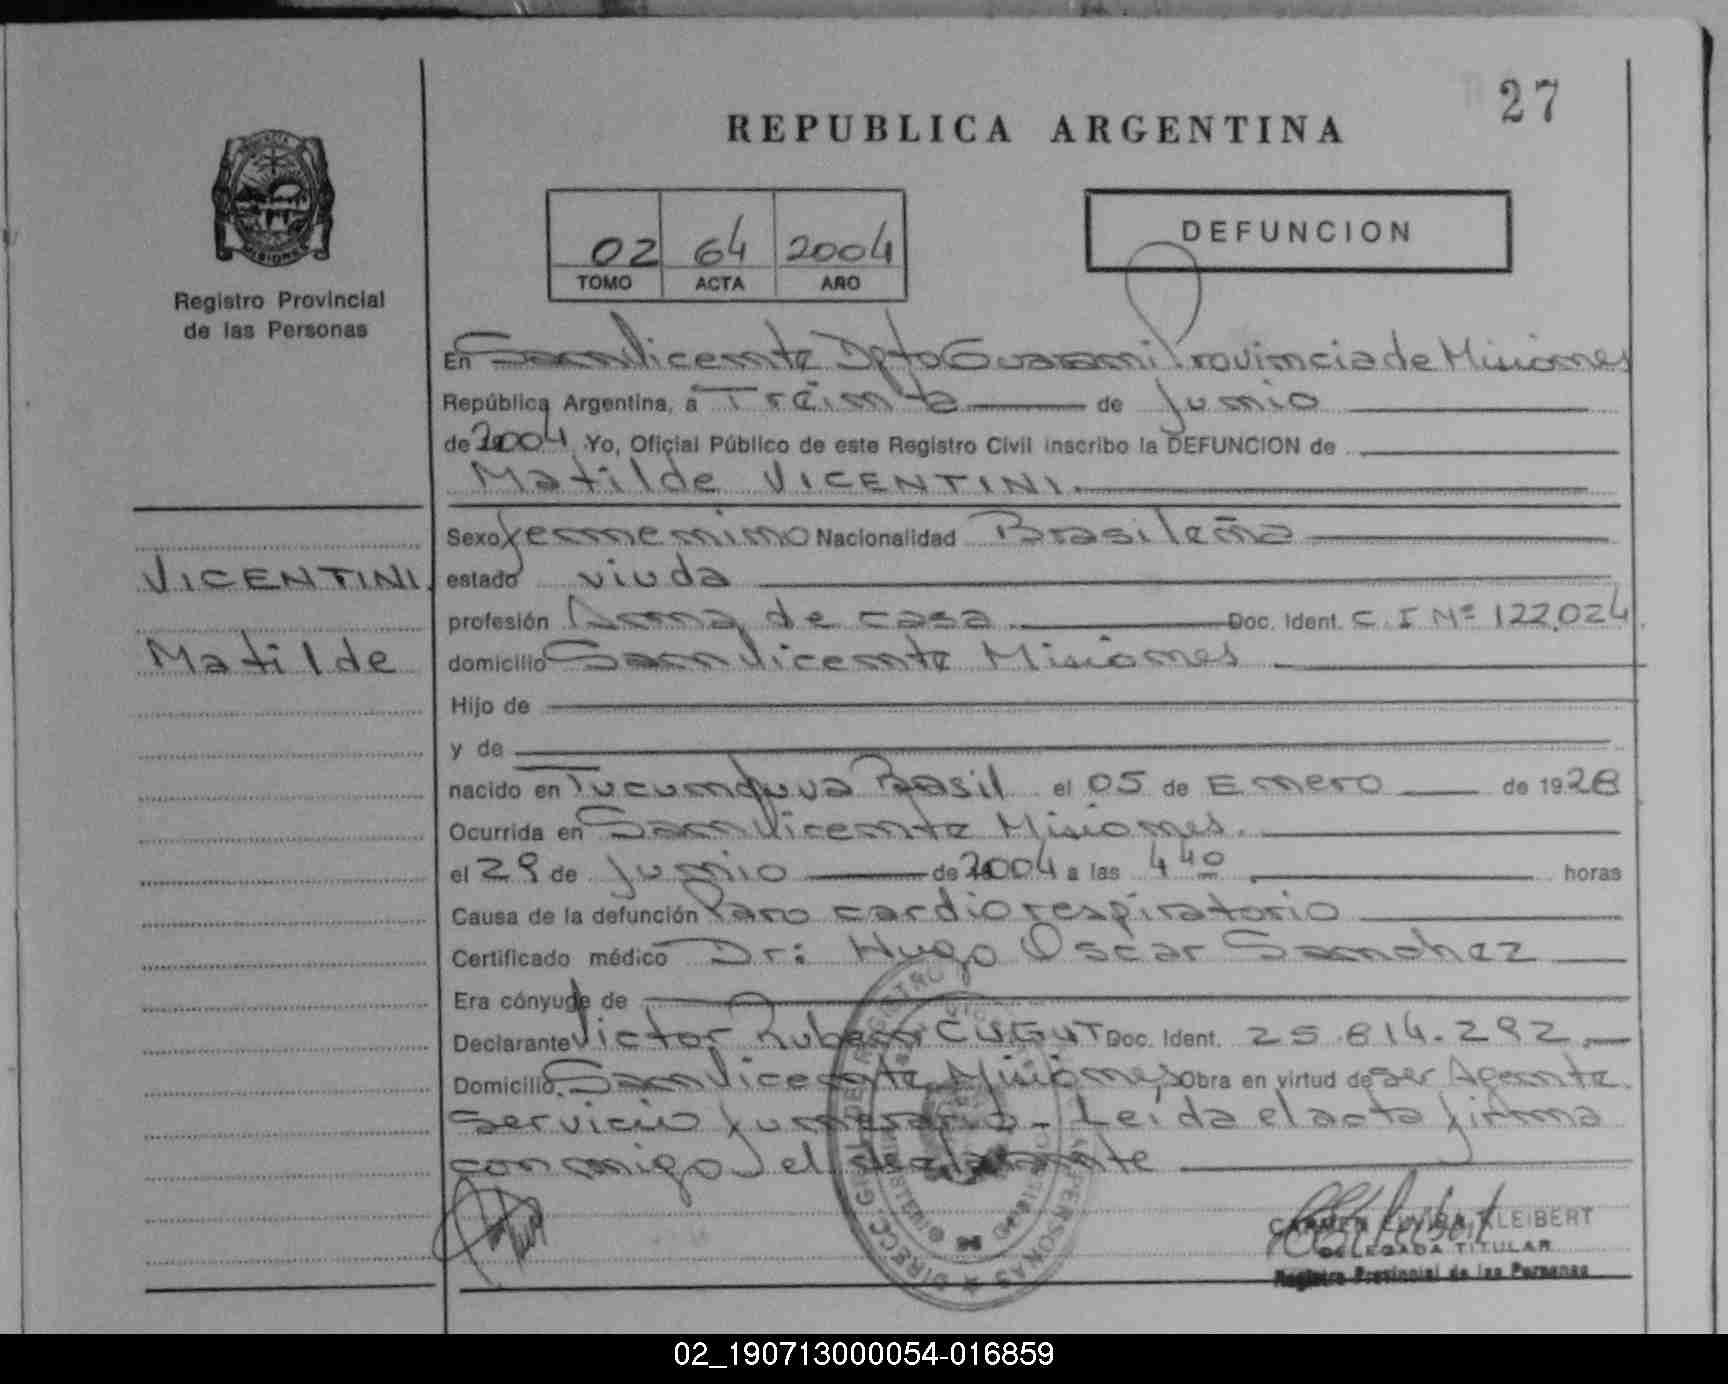 27
REPUBLICA ARGENTINA
MISIONES
Registro Provincial
de las Personas
02 64 2004
TOMO ACTA AÑO
DEFUNCION
En San Vicente Dpto Guarani Provincia de Misiones
República Argentina, a Treinta de Junio
de 2004 Yo, Oficial Público de este Registro Civil inscribo la DEFUNCION de
Matilde VICENTINI.
VICENTINI.
Matilde
Sexo femenino Nacionalidad Brasileña
estado viuda
profesión Ama de casa Doc. Ident. C. I Nº 122.024
domicilio San Vicente Misiones
Hijo de
y de
nacido en Brasil el 05 de Enero de 1928
Ocurrida en San Vicente Misiones.
el 29 de Junio de 2004 a las 4 40 horas
Causa de la defunción Paro cardio respiratorio
Certificado médico Dr: Hugo Oscar Sanchez
Era cónyuge de
Declarante Victor Ruben CUGUT Doc. Ident. 25.814.292
Domicilio San Vicente Misiones Obra en virtud de ser Agente
servicio funerario - Leida el acta firma
conmigo el declarante
CARMEN KLEIBERT
DELEGADA TITULAR
Registro Provincial de las Personas
02_190713000054-016859